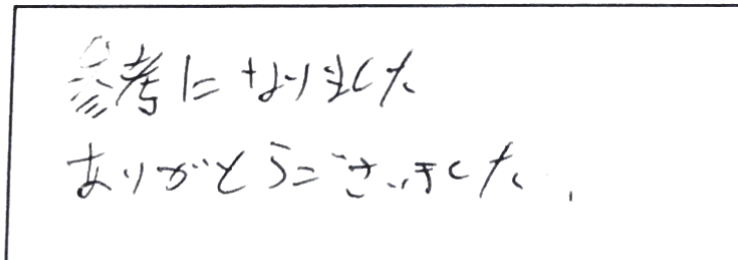 参考になりました
ありがとうございました。